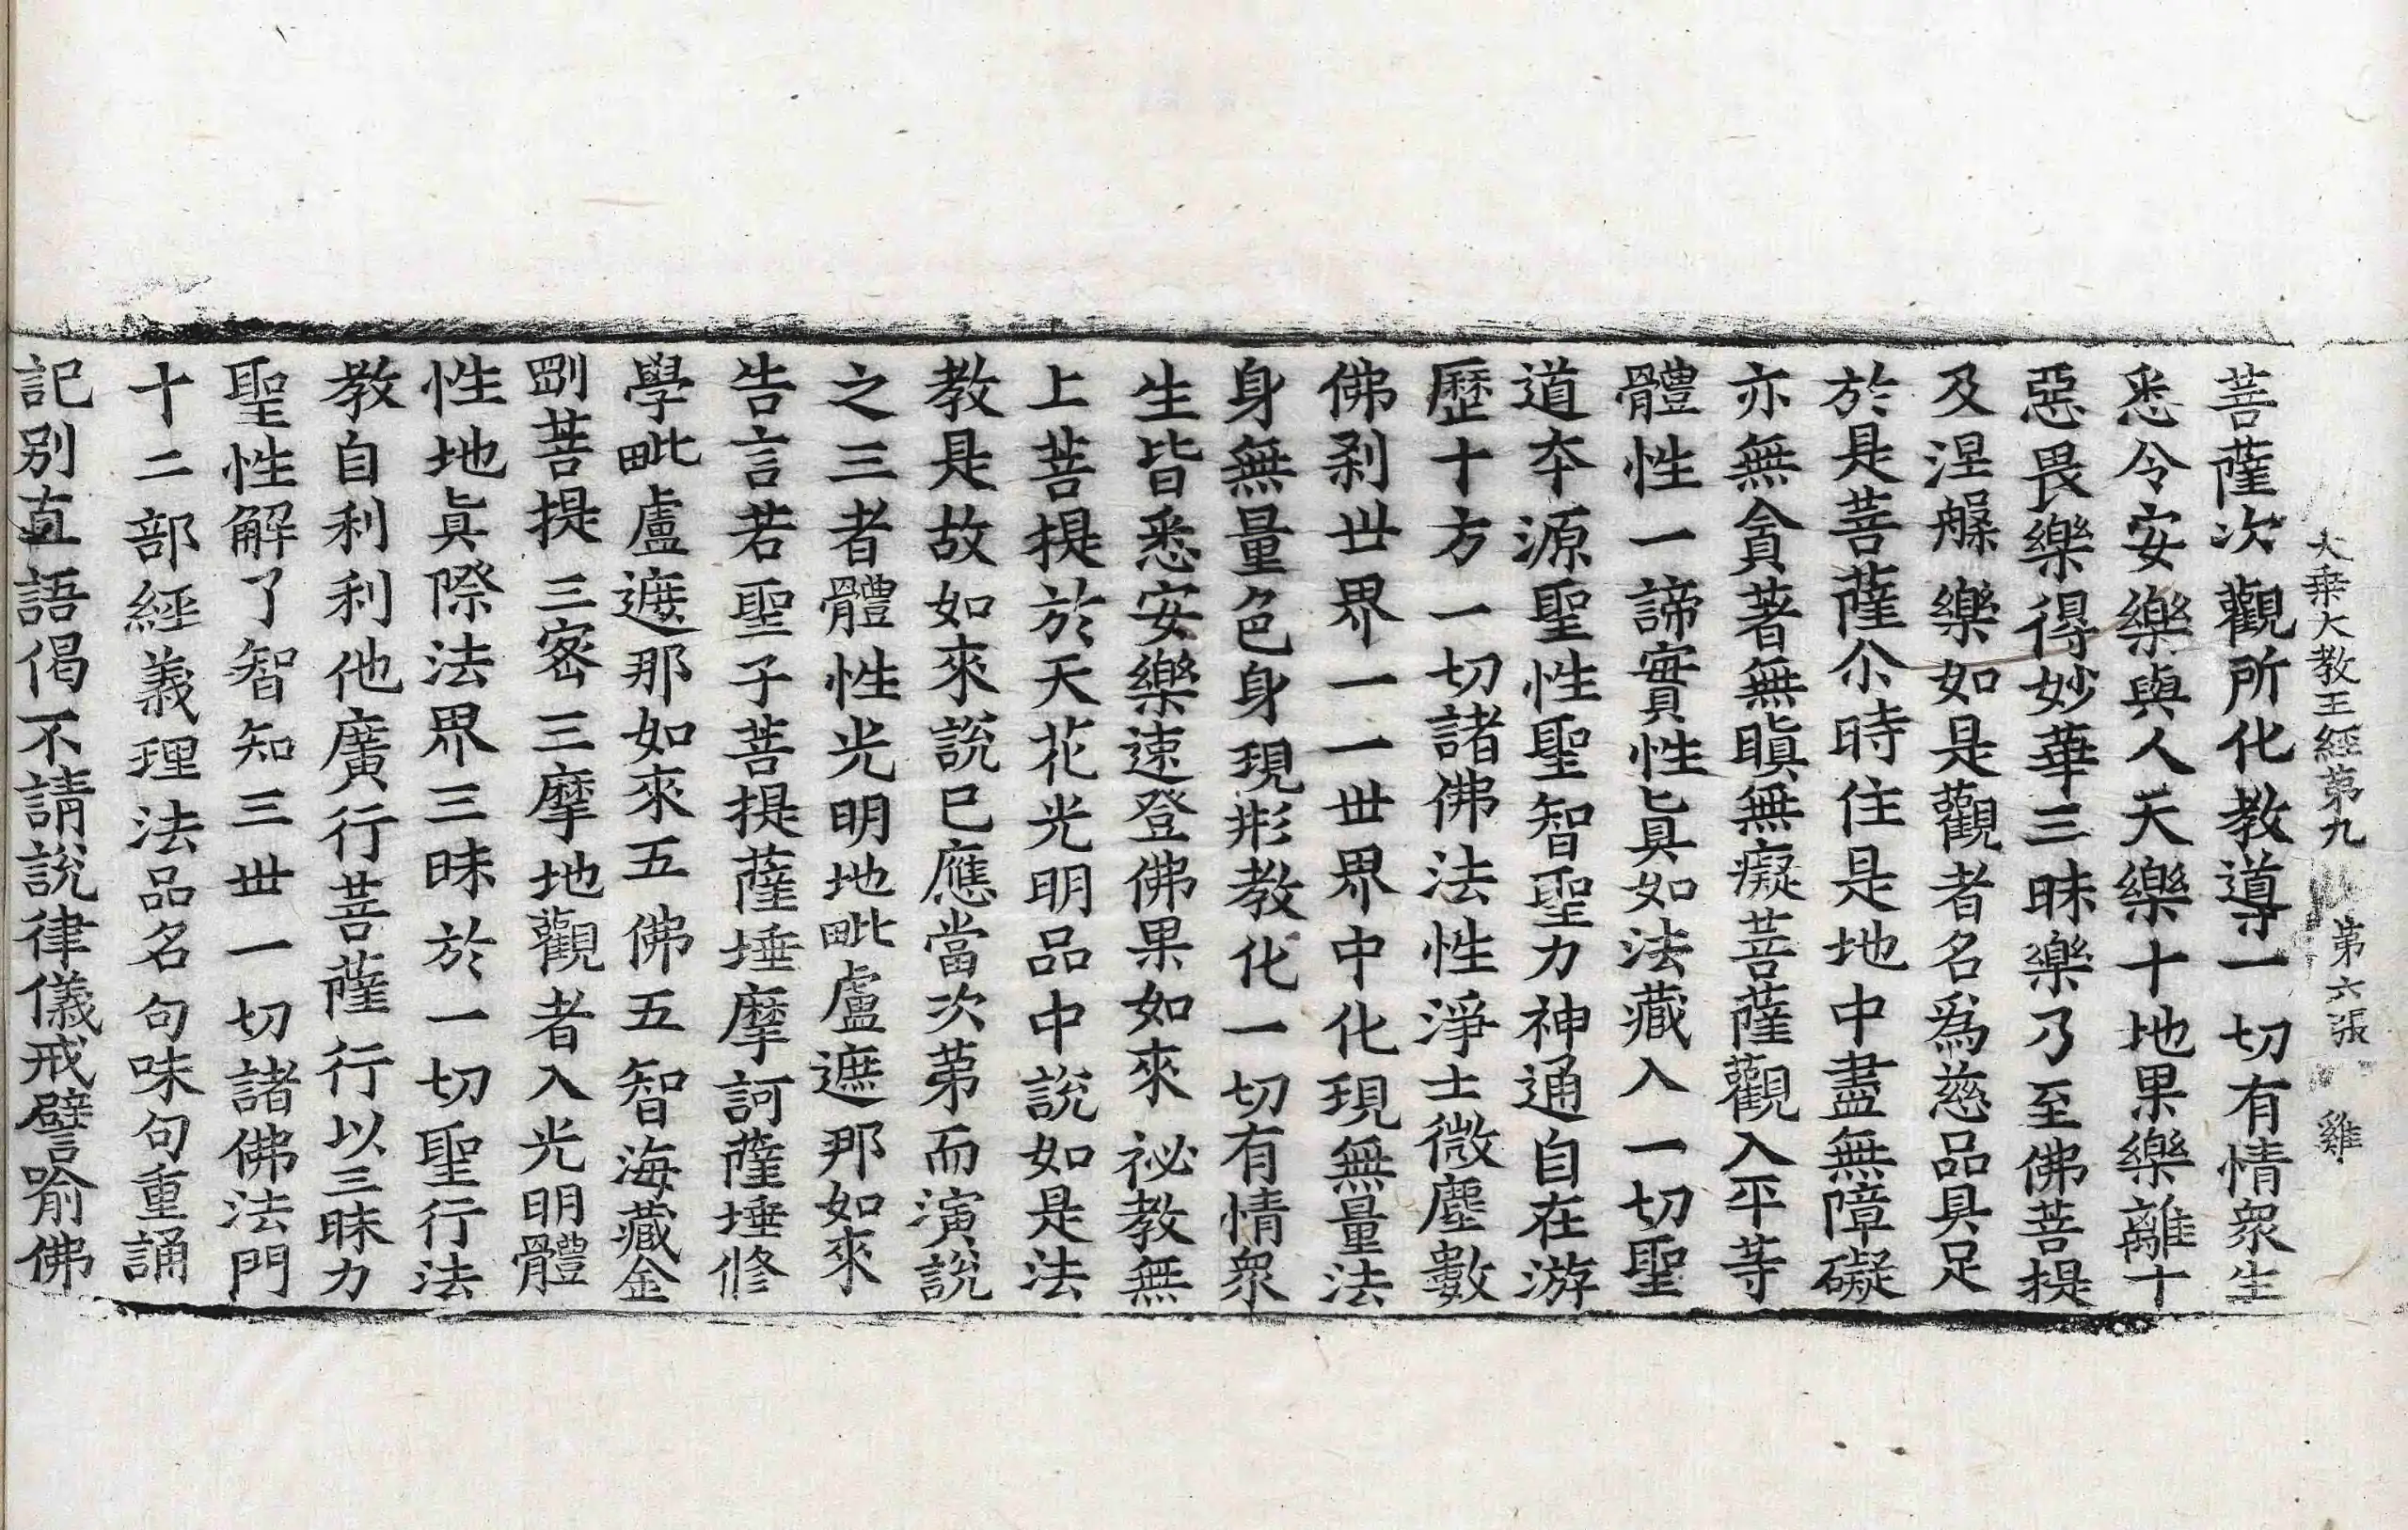 大乘大教王經第九 第六張 雞
菩薩次觀所化教導一切有情衆生
悉令安樂與人天樂十地果樂離十
惡畏樂得妙華三昧樂乃至佛菩提
及涅槃樂如是觀者名爲慈品具足
於是菩薩尒時住是地中盡無障礙
亦無貪著無瞋無癡菩薩觀入平等
體性一諦實性眞如法藏入一切聖
道夲源聖性聖智聖力神通自在游
歷十方一切諸佛法性淨土微塵數
佛刹世界一一世界中化現無量法
身無量色身現形教化一切有情衆
生皆悉安樂速登佛果如來祕教無
上菩提於天花光明品中說如是法
教是故如來說已應當次第而演說
之三者體性光明地毗盧遮那如來
告言若聖子菩提薩埵摩訶薩埵修
學毗盧遮那如來五佛五智海藏金
剛菩提三密三摩地觀者入光明體
性地眞際法界三昧於一切聖行法
教自利利他廣行菩薩行以三昧力
聖性解了智知三世一切諸佛法門
十二部經義理法品名句味句重誦
記别直語偈不請說律儀戒譬喻佛